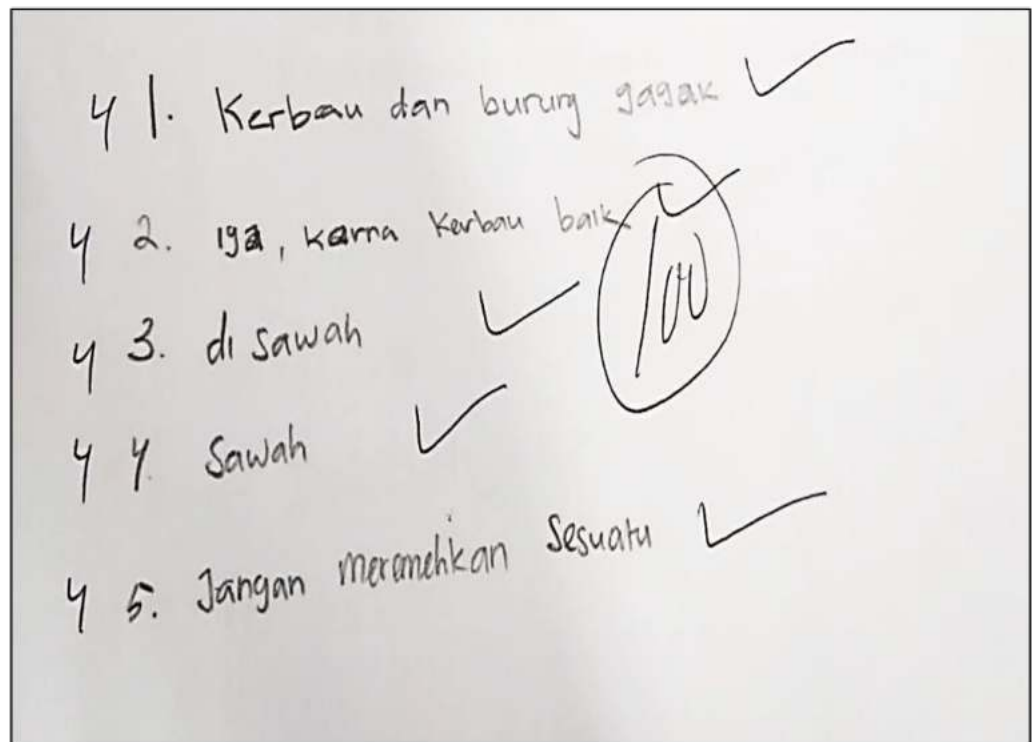 4 1. Kerbau dan burung gagak
4 2. iya, karna Kerbau baik
100
4 3. di sawah
4 4. Sawah
4 5. Jangan meremehkan Sesuatu